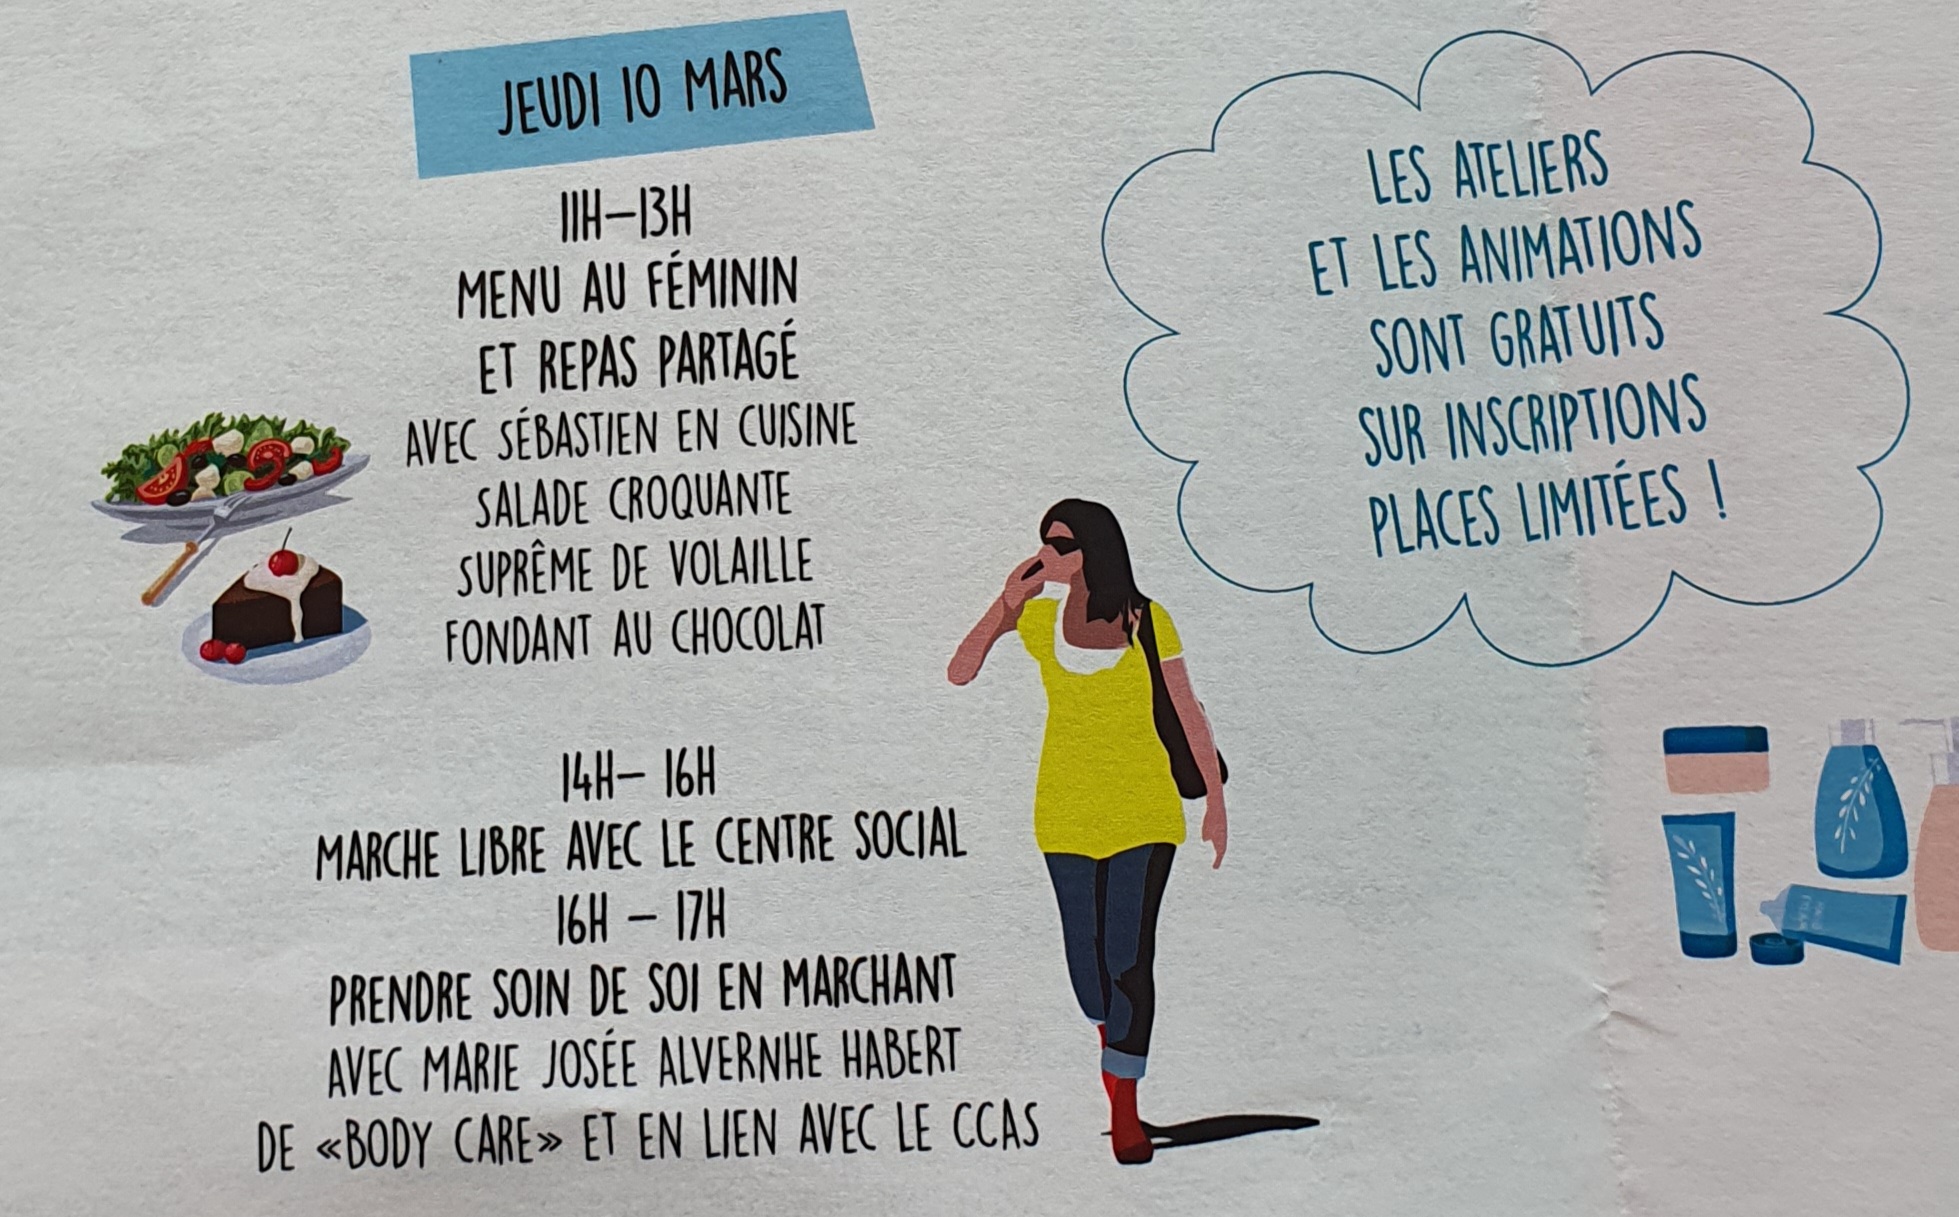 JEUDI 10 MARS
11H–13H
MENU AU FÉMININ
ET REPAS PARTAGÉ
AVEC SÉBASTIEN EN CUISINE
SALADE CROQUANTE
SUPRÊME DE VOLAILLE
FONDANT AU CHOCOLAT
14H– 16H
MARCHE LIBRE AVEC LE CENTRE SOCIAL
16H – 17H
PRENDRE SOIN DE SOI EN MARCHANT
AVEC MARIE JOSÉE ALVERNHE HABERT
DE «BODY CARE» ET EN LIEN AVEC LE CCAS
LES ATELIERS
ET LES ANIMATIONS
SONT GRATUITS
SUR INSCRIPTIONS
PLACES LIMITÉES !